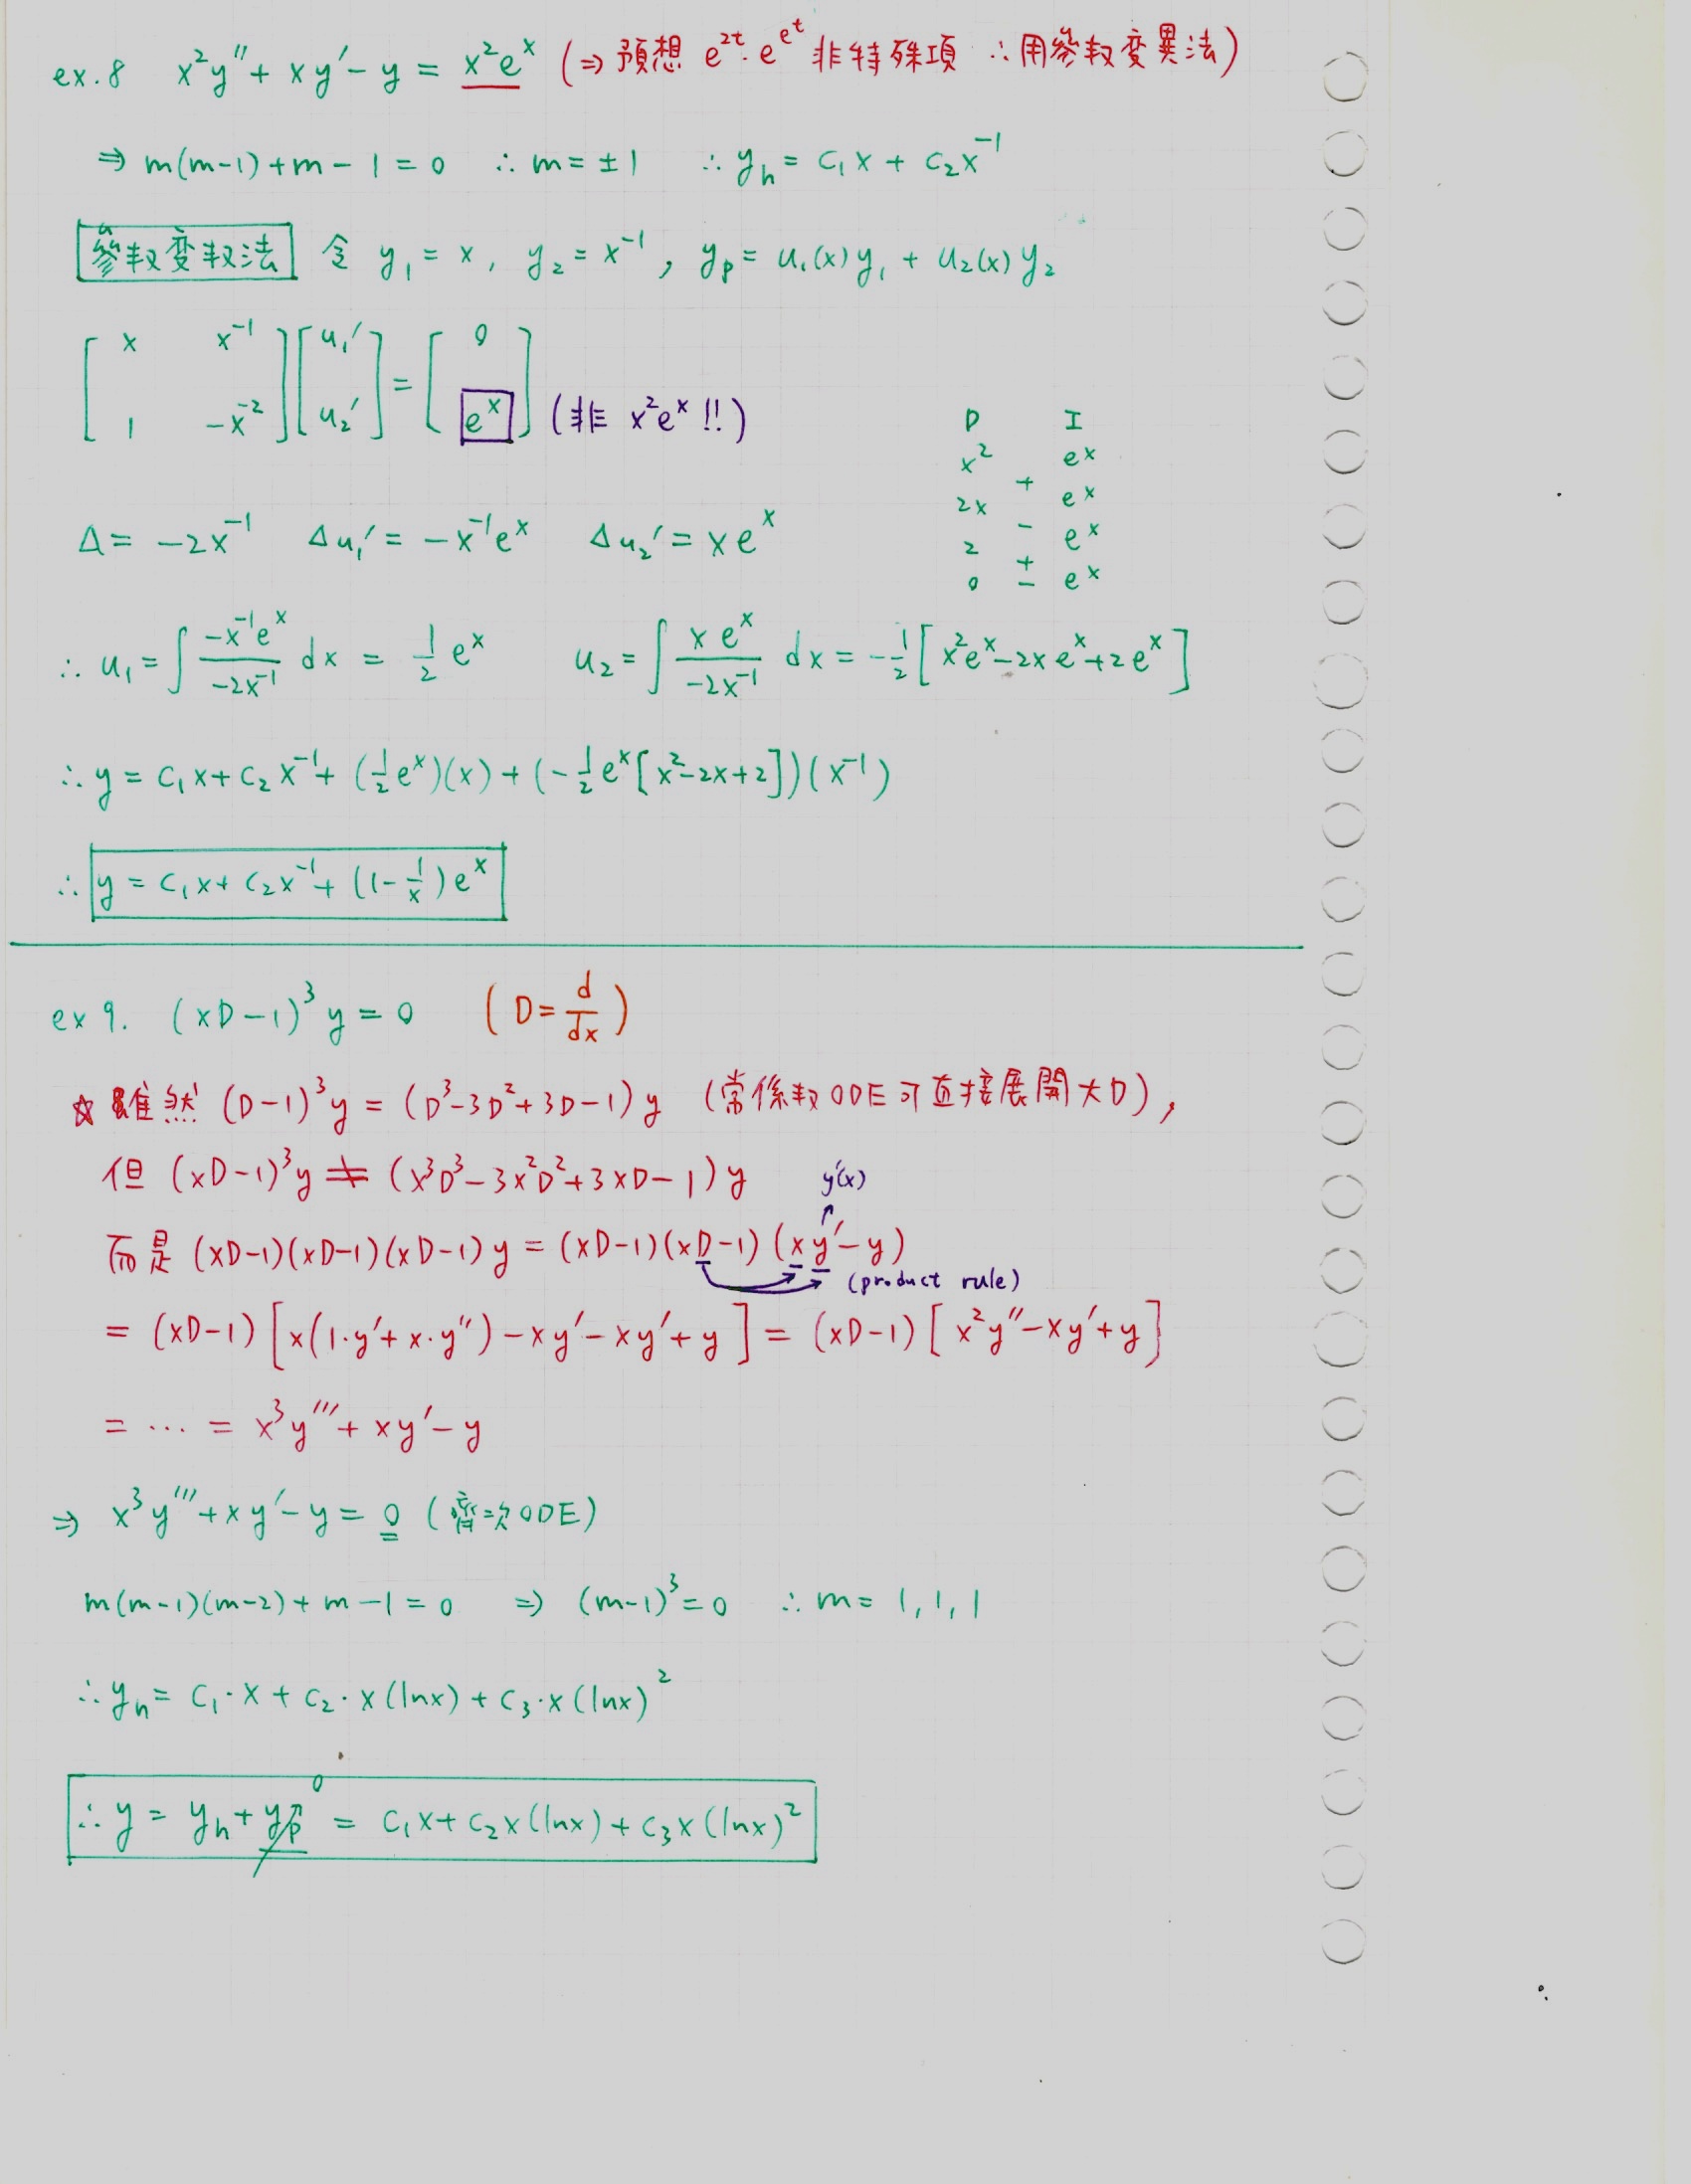 ex.8 x²y″ + xy′ − y = x²eˣ (⇒ 預想 e²ᵗ · e^(eᵗ) 非特殊項 ∴ 用參数变異法)
⇒ m(m−1)+m−1=0 ∴ m=±1 ∴ y_h = c₁x + c₂x⁻¹
參数变数法 令 y₁ = x, y₂ = x⁻¹, y_p = u₁(x)y₁ + u₂(x)y₂
[ x x⁻¹ ] [ u₁′ ] = [ 0 ]
[ 1 −x⁻² ] [ u₂′ ] [ eˣ ] (非 x²eˣ !!)
D I
x² eˣ
+
2x eˣ
−
2 eˣ
+
0 − eˣ
Δ = −2x⁻¹ Δu₁′ = −x⁻¹eˣ Δu₂′ = xeˣ
∴ u₁ = ∫ (−x⁻¹eˣ)/(−2x⁻¹) dx = ½eˣ u₂ = ∫ (xeˣ)/(−2x⁻¹) dx = −½[x²eˣ−2xeˣ+2eˣ]
∴ y = c₁x + c₂x⁻¹ + (½eˣ)(x) + (−½eˣ[x²−2x+2])(x⁻¹)
∴ y = c₁x + c₂x⁻¹ + (1−1/x)eˣ
ex 9. (xD−1)³y = 0 (D = d/dx)
☆ 雖然 (D−1)³y = (D³−3D²+3D−1)y (常係数ODE可直接展開大D),
但 (xD−1)³y ≠ (x³D³−3x²D²+3xD−1)y
y′(x)
↑
而是 (xD−1)(xD−1)(xD−1)y = (xD−1)(xD−1)(xy′−y)
(product rule)
= (xD−1)[x(1·y′+x·y″)−xy′−xy′+y] = (xD−1)[x²y″−xy′+y]
= ⋯ = x³y‴+xy′−y
⇒ x³y‴+xy′−y = 0 (齊次ODE)
m(m−1)(m−2)+m−1=0 ⇒ (m−1)³=0 ∴ m = 1, 1, 1
∴ y_h = c₁·x + c₂·x(lnx) + c₃·x(lnx)²
0
∴ y = y_h + y_p = c₁x + c₂x(lnx) + c₃x(lnx)²